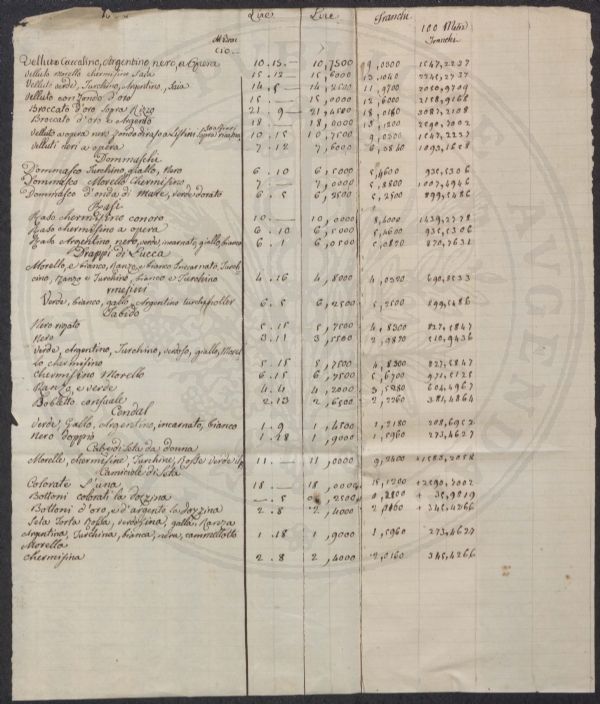 Lire Lire Franchi
100 Metri
Franchi
Velluto Caccalino, Argentino nero, a Opera 10.15 10,7500 9,0300 1547,2237
Velluto morello chermisino Saia 15.12 15,6000 13,1040
Velluto verde, Turchino, Argentino, Saia 14.5 14,2500 11,9700
Velluto con fondo d'oro 15.— 15,0000 12,6000 2158,9166
Broccato d'oro sopra Rizzo 21.9 21,4500 18,0180 3087,2108
Broccato d'oro e Argento 18.— 18,0000 15,1200 2590,7002
Velluto a opera nero fondo di raso 10.15 10,7500 9,0300 1547,2237
Velluti neri a opera 7.12 7,6000 6,3840
Dommaschi
Dommasco Turchino, giallo, Nero 6.10 6,5000 5,4600 935,5306
Dommasco Morello Chermisino 7.— 7,0000 5,8800 1007,4946
Dommasco d'onda di Mare, verde dorato 6.5 6,2500 5,2500 899,5486
Rasi
Raso chermisino con oro 10.— 10,0000 8,4000 1439,2778
Raso chermisino a opera 6.10 6,5000 5,4600 935,5306
Raso Argentino, nero, verde, incarnato, giallo, bianco 6.1 6,0500 5,0820 870,7631
Drappi di Lucca
Morello, e bianco, Ranzo, e bianco Incarnato, Turch
cino, ranzo e Turchino, bianco e Turchino 4.16 4,8000 4,0320 690,8533
Ermesini
Verde, bianco, gallo, Argentino turchino 6.5 6,2500 5,2500 899,5486
Tabido
Nero rigato 5.15 5,7500 4,8300 827,5847
Nero 3.11 3,5500 2,9820 510,9436
Verde, Argentino, Turchino, giallo, Morel
lo chermisino 5.15 5,7500 4,8300 827,5847
Chermisino Morello 6.15 6,7500 5,6700 971,5125
Ranzo, e verde 4.4 4,2000 3,5280 604,4967
2.13 2,6500 2,2260 381,4864
Cendal
Verde, Gallo, Argentino, incarnato, bianco 1.9 1,4500 1,2180 208,6952
Nero doppio 1.18 1,9000 1,5960 273,4627
Calze di Seta da donna
Morelle, chermisine, Turchine, Rosse Verde 11.— 11,0000 9,2400 1583,2058
Camiciole di Seta
Colorate L'una 18.— 18,0000 15,1200 2590,7002
Bottoni colorati la dozzina —.5 0,2500 0,2100 35,9819
Bottoni d'oro, e d'argento la dozzina 2.8 2,4000 2,0160 345,4266
Seta Torta Rossa, verdssina, galla, Ranza
Argentina, Turchina, bianca, nera, cammellotto 1.18 1,9000 1,5960 273,4627
Morella
Chermisina 2.8 2,4000 2,0160 345,4266